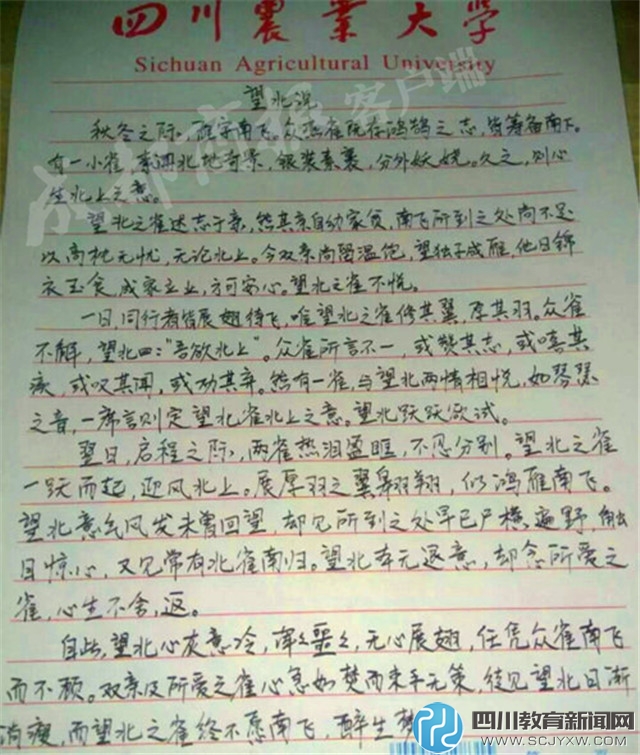 四川农业大学
Sichuan Agricultural University
望北说
秋冬之际，雁字南飞。众燕雀既存鸿鹄之志，皆筹备南下。
有一小雀，素闻北地奇景，银装素裹，分外妖娆。久之，则心
生北上之意。
望北之雀述志于亲，然其亲自幼家贫，南飞所到之处尚不足
以高枕无忧，无论北上。今双亲尚留温饱，望独子成雁，他日锦
衣玉食，成家立业，方可安心。望北之雀不悦。
一日，同行者皆展翅待飞，唯望北之雀修其翼，厚其羽。众雀
不解，望北曰："吾欲北上"。众雀所言不一，或赞其志，或嘻其
痴，或叹其闻，或劝其弃。然有一雀，与望北两情相悦，如琴瑟
之音，一席言则定望北雀北上之意。望北跃跃欲试。
翌日，启程之际，两雀热泪盈眶，不忍分别。望北之雀
一跃而起，迎风北上。展厚羽之翼翱翔，似鸿雁南飞。
望北意气风发未曾回望，却见所到之处早已尸横遍野，触
目惊心，又见常有北雀南归。望北本无退意，却念所爱之
雀，心生不舍，返。
自此，望北心灰意冷，浑浑噩噩，无心展翅，任凭众雀南飞
而不顾。双亲及所爱之雀心急如焚而束手无策，徒见望北日渐
消瘦，而望北之雀终不愿南飞，醉生梦
成都商报客户端
四川教育新闻网
WWW.SCJYXW.COM